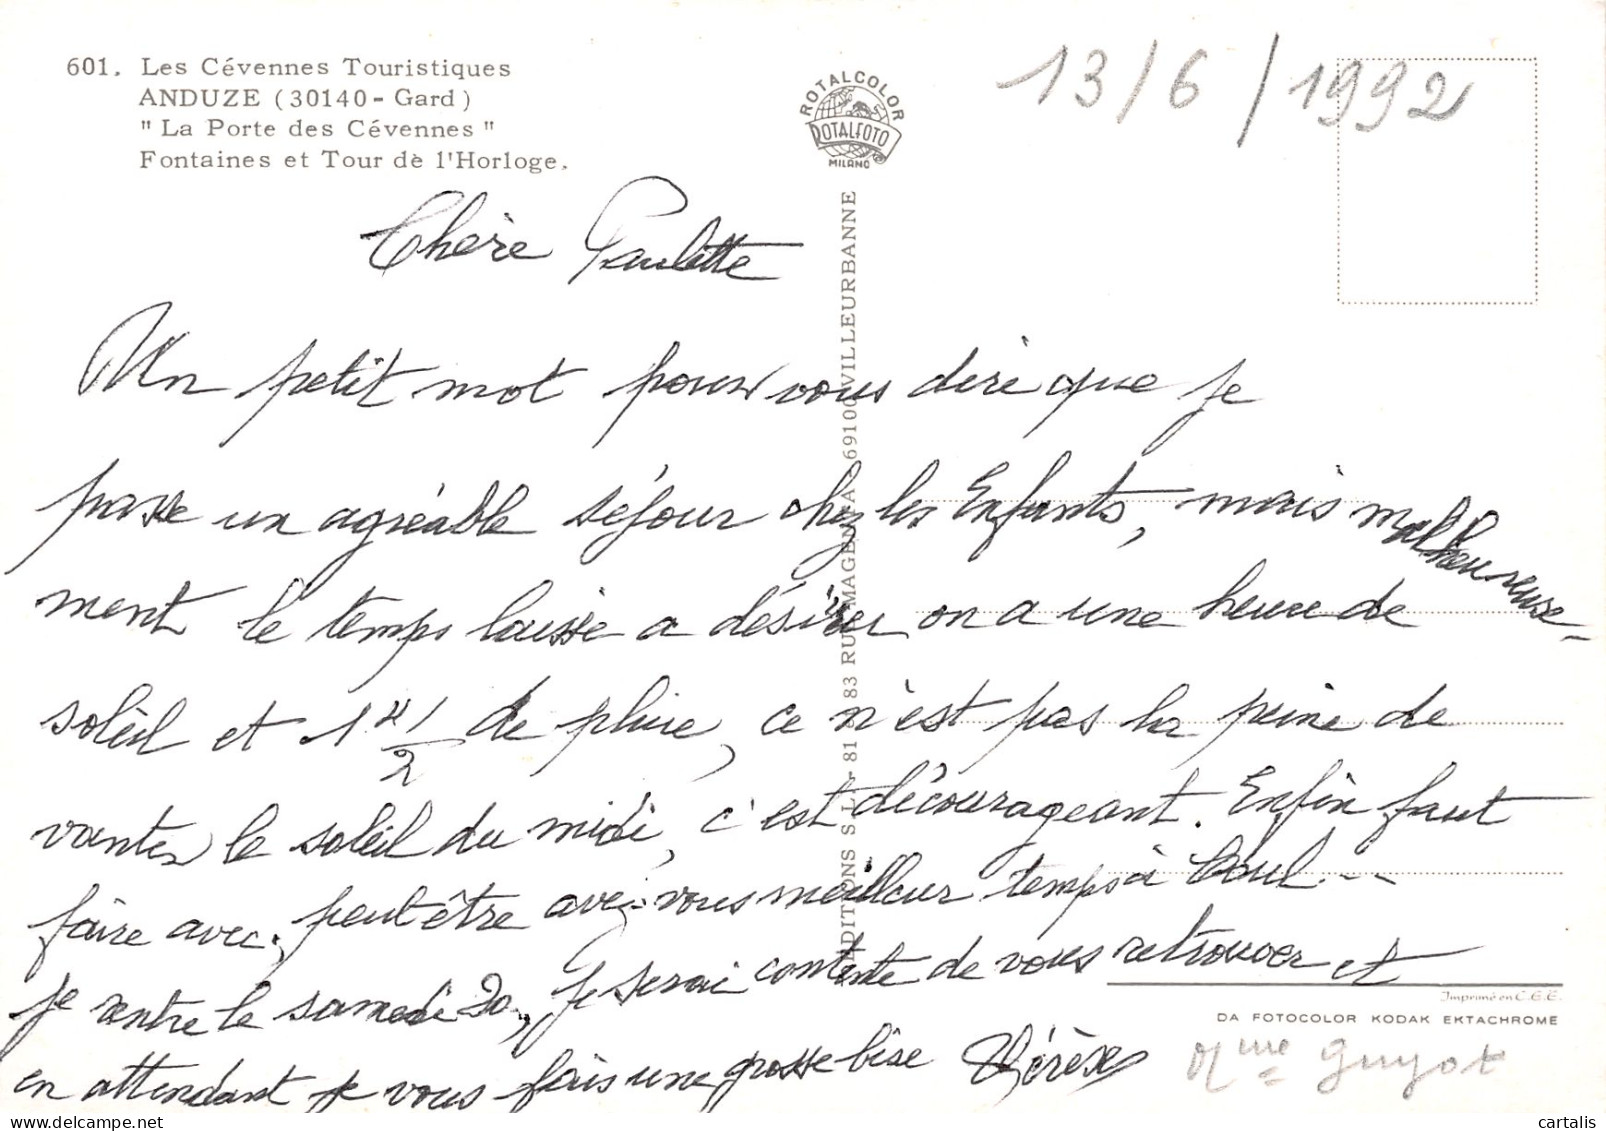 601. Les Cévennes Touristiques
ANDUZE (30140 - Gard)
" La Porte des Cévennes "
Fontaines et Tour de l'Horloge.
ROTALCOLOR
ROTALFOTO
MILANO
13/6/1992
Chère Paulette
Un petit mot pour vous dire que je
passe un agréable séjour chez les Enfants, mais malheureuse-
ment le temps laisse a désirer, on a une heure de
soleil et 1 H 1/2 de pluie, ce n'est pas la peine de
vanter le soleil du midi, c'est décourageant. Enfin faut
faire avec, peut être avez-vous meilleur temps à
je rentre le samedi 20, je serai contente de vous retrouver et
en attendant je vous fais une grosse bise Thérèse
EDITIONS S.L. - 81 83 RUE MAGENTA - 69100 VILLEURBANNE
Imprimé en C.E.E.
DA FOTOCOLOR KODAK EKTACHROME
Mme Guyot
cartalis
delcampe.net